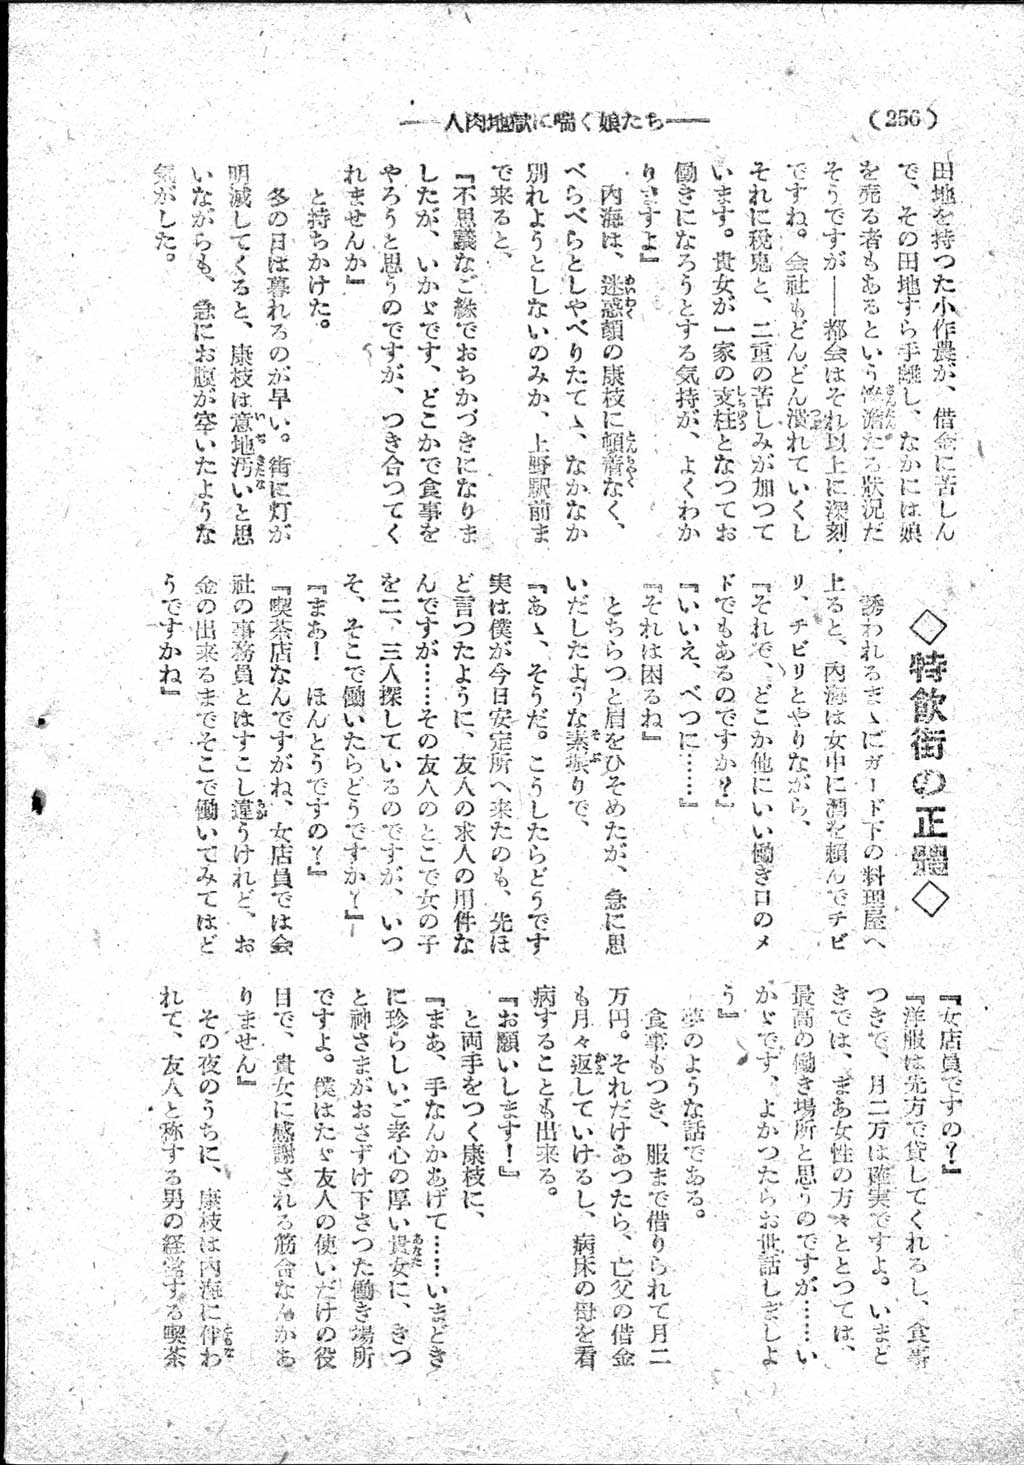 (256)
――人肉地獄に喘ぐ娘たち――
田地を持つた小作農が、借金に苦しん
で、その田地すら手離し、なかには娘
を売る者もあるという惨澹たる状況だ
そうですが――都会はそれ以上に深刻
ですね。会社もどんどん潰れていくし
それに税鬼と、二重の苦しみが加つて
います。貴女が一家の支柱となつてお
働きになろうとする気持が、よくわか
りますよ』
内海は、迷惑顔の康枝に頓着なく、
べらべらとしやべりたてゝ、なかなか
別れようとしないのみか、上野駅前ま
で来ると、
『不思議なご縁でおちかづきになりま
したが、いかゞです、どこかで食事を
やろうと思うのですが、つき合つてく
れませんか』
と持ちかけた。
冬の日は暮れるのが早い。街に灯が
明滅してくると、康枝は意地汚いと思
いながらも、急にお腹が空いたような
気がした。
◇特飲街の正體◇
誘われるまゝにガード下の料理屋へ
上ると、内海は女中に酒を頼んでチビ
リ、チビリとやりながら、
『それで、どこか他にいい働き口のメ
ドでもあるのですか?』
『いいえ、べつに……』
『それは困るね』
とちらつと眉をひそめたが、急に思
いだしたような素振りで、
『あゝ、そうだ。こうしたらどうです
実は僕が今日安定所へ来たのも、先ほ
ど言つたように、友人の求人の用件な
んですが……その友人のとこで女の子
を二、三人探しているのですが、いつ
そ、そこで働いたらどうですか?』
『まあ! ほんとうですの?』
『喫茶店なんですがね、女店員では会
社の事務員とはすこし違うけれど、お
金の出来るまでそこで働いてみてはど
うですかね』
『女店員ですの?』
『洋服は先方で貸してくれるし、食事
つきで、月二万は確実ですよ。いまど
きでは、まあ女性の方々にとつては、
最高の働き場所と思うのですが……い
かゞです、よかつたらお世話しましよ
う』
夢のような話である。
食事もつき、服まで借りられて月二
万円。それだけあつたら、亡父の借金
も月々返していけるし、病床の母を看
病することも出来る。
『お願いします!』
と両手をつく康枝に、
『まあ、手なんかあげて……いまどき
に珍らしいご孝心の厚い貴女に、きつ
と神さまがおさずけ下さつた働き場所
ですよ。僕はたゞ友人の使いだけの役
目で、貴女に感謝される筋合なんかあ
りません』
その夜のうちに、康枝は内海に伴わ
れて、友人と称する男の経営する喫茶